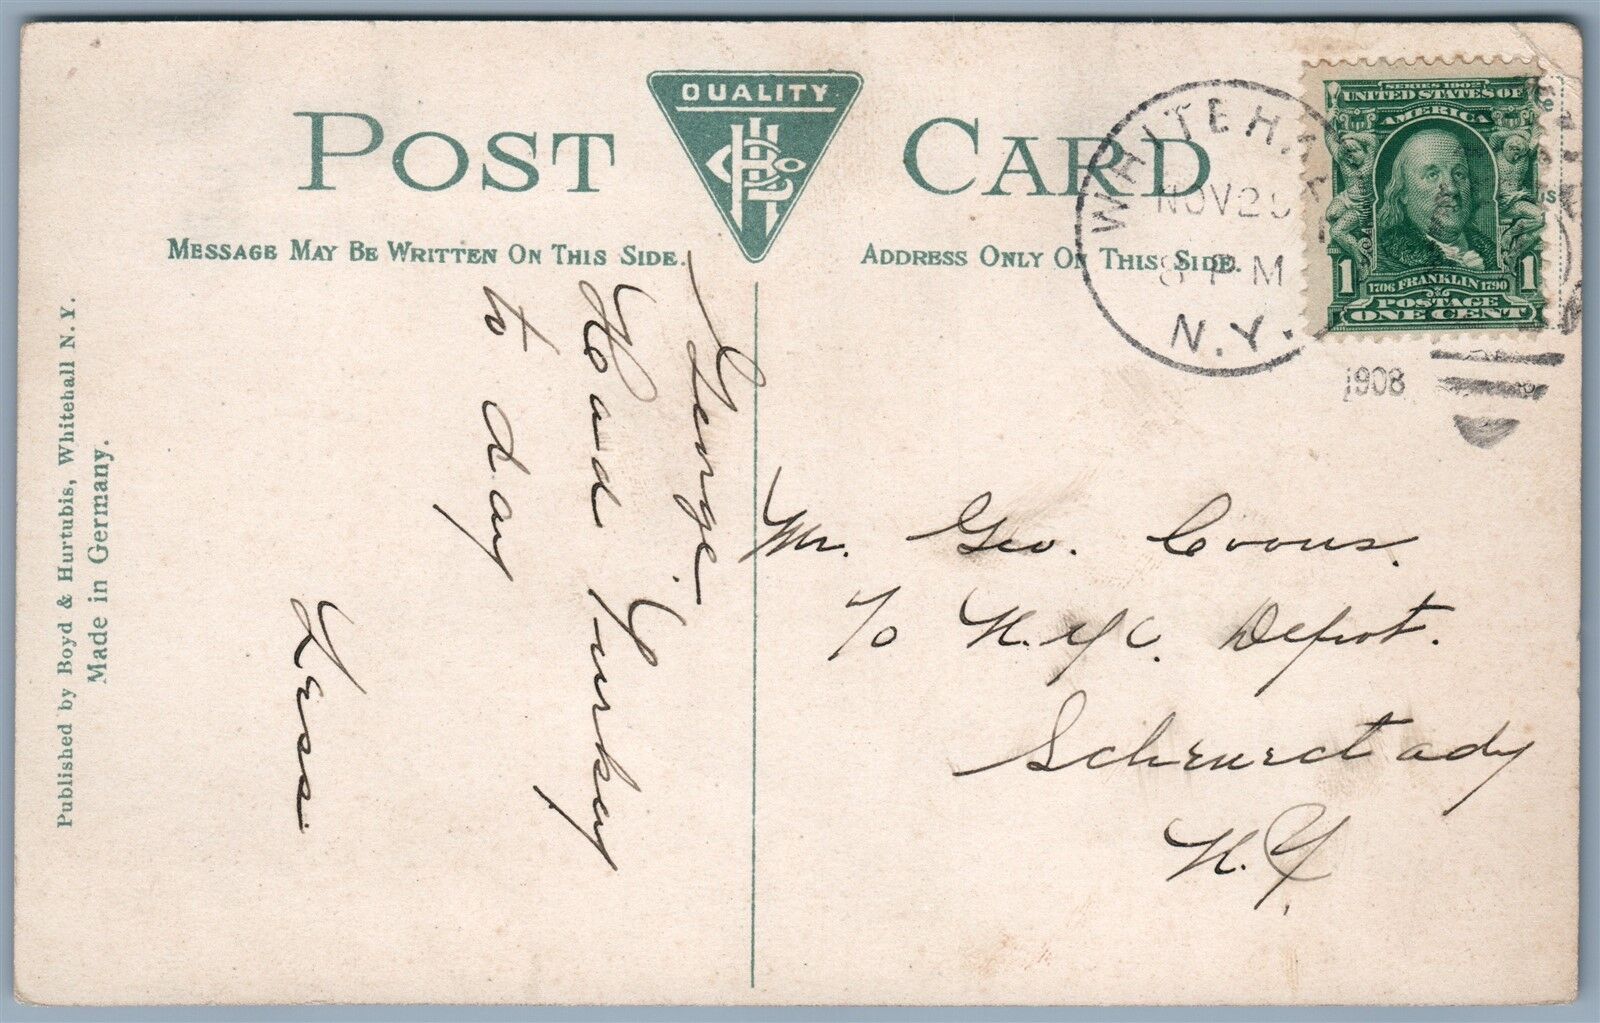 POST CARD
QUALITY
MESSAGE MAY BE WRITTEN ON THIS SIDE.
ADDRESS ONLY ON THIS SIDE.
WHITEHALL
NOV 26
8 PM
N.Y.
1908
SERIES 1902
UNITED STATES OF
AMERICA
1 1706 FRANKLIN 1790 1
POSTAGE
ONE CENT
Published by Boyd & Hurtubis, Whitehall N. Y.
Made in Germany.
George.
Had Turkey
to day
Mr. Geo. Coons.
c/o N.Y.C. Depot.
Schenectady
N.Y.